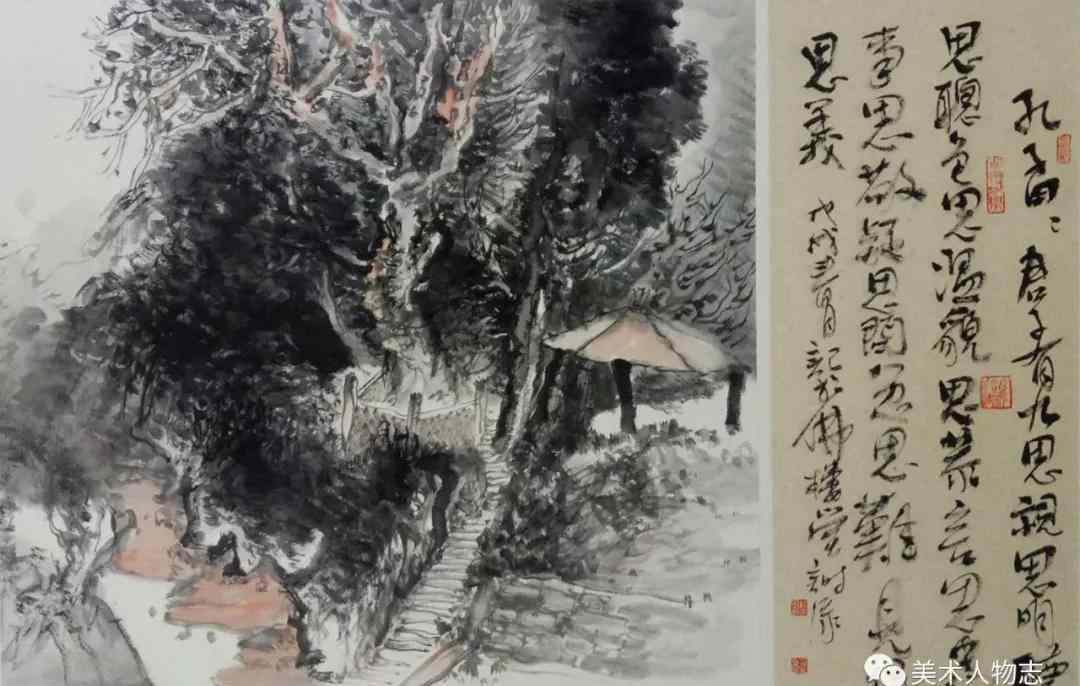 孔子曰：君子有九思視思明聽
思聰色思溫貌思恭言思忠
事思敬疑思問忿思難見
思義
戊戌三月記於佛樓
美术人物志